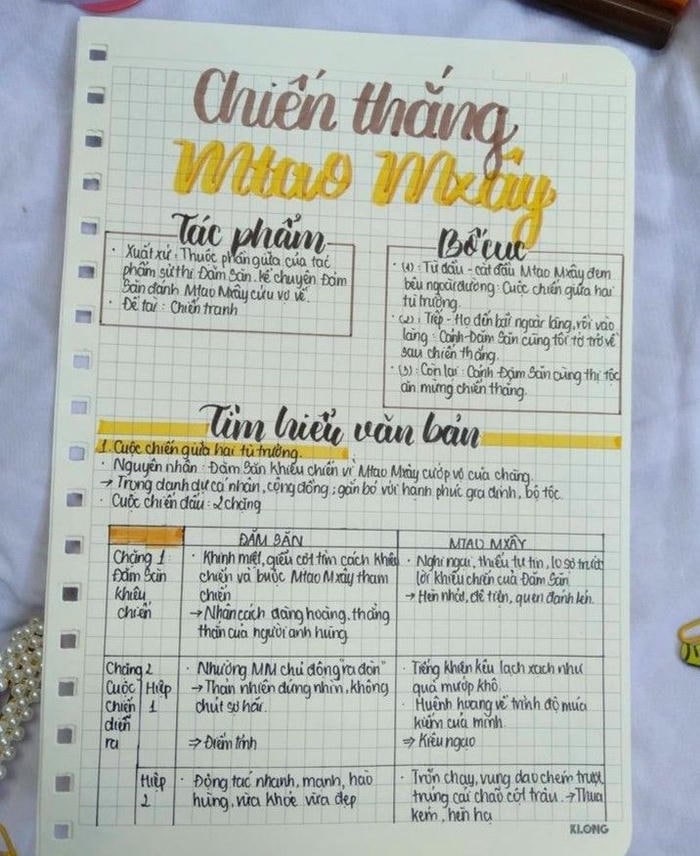 Chiến thắng
Mtao Mxây
Tác phẩm
· Xuất xứ: Thuộc phần giữa của tác
phẩm sử thi Đăm Săn. kể chuyện Đăm
Săn đánh Mtao Mxây cứu vợ về.
· Đề tài: Chiến tranh
Bố cục
· (1): Từ đầu - cắt đầu Mtao Mxây đem
bêu ngoài đường: Cuộc chiến giữa hai
tù trưởng.
· (2): Tiếp - Họ đến bãi ngoài làng, rồi vào
làng: Cảnh Đăm Săn cùng tôi tớ trở về
sau chiến thắng.
· (3): Còn lại: Cảnh Đăm Săn cùng thị tộc
ăn mừng chiến thắng.
Tìm hiểu văn bản
1. Cuộc chiến giữa hai tù trưởng.
· Nguyên nhân: Đăm Săn khiêu chiến vì Mtao Mxây cướp vợ của chàng.
→ Trọng danh dự cá nhân, cộng đồng; gắn bó với hạnh phúc gia đình, bộ tộc.
· Cuộc chiến đấu: 2 chặng
ĐĂM SĂN
MTAO MXÂY
Chặng 1:
Đăm Săn
khiêu
chiến
· Khinh miệt, giễu cợt tìm cách khiêu
chiến và buộc Mtao Mxây tham
chiến
→ Nhân cách đàng hoàng, thẳng
thắn của người anh hùng
· Nghi ngại, thiếu tự tin, lo sợ trước
lời khiêu chiến của Đăm Săn
→ Hèn nhát, đê tiện, quen đánh lén.
Chặng 2
Cuộc
chiến
diễn
ra
Hiệp
1
· Nhường MM chủ động "ra đòn"
→ Thản nhiên đứng nhìn, không
chút sợ hãi.
⇒ Điềm tĩnh
· Tiếng khiên kêu lạch xạch như
quả mướp khô.
· Huênh hoang về trình độ múa
kiếm của mình.
⇒ Kiêu ngạo
Hiệp
2
· Động tác nhanh, mạnh, hào
hùng, vừa khỏe vừa đẹp
· Trốn chạy, vung dao chém trượt,
trúng cái chão cột trâu. → Thua
kém, hèn hạ
KLONG